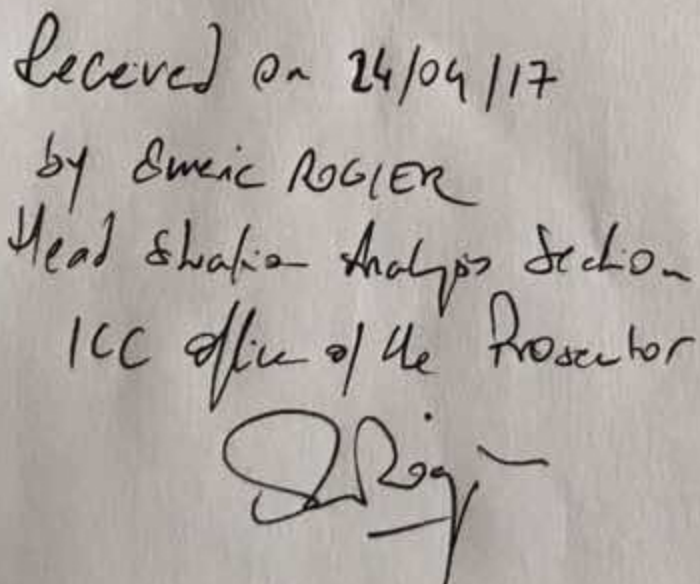 Received on 24/04/17
by Emeric ROGIER
Head Situation Analysis Section
ICC Office of the Prosecutor